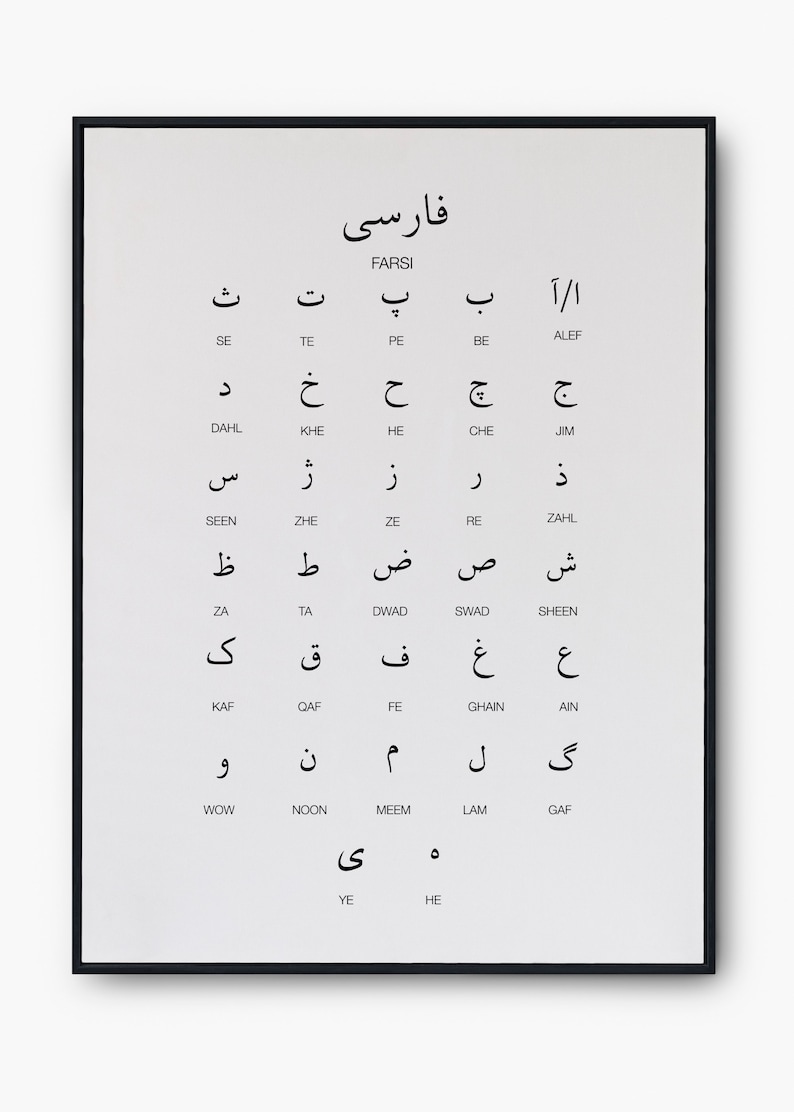 فارسی
FARSI
ا/آ ب پ ت ث
ALEF BE PE TE SE
ج چ ح خ د
JIM CHE HE KHE DAHL
ذ ر ز ژ س
ZAHL RE ZE ZHE SEEN
ش ص ض ط ظ
SHEEN SWAD DWAD TA ZA
ع غ ف ق ک
AIN GHAIN FE QAF KAF
گ ل م ن و
GAF LAM MEEM NOON WOW
ه ی
HE YE